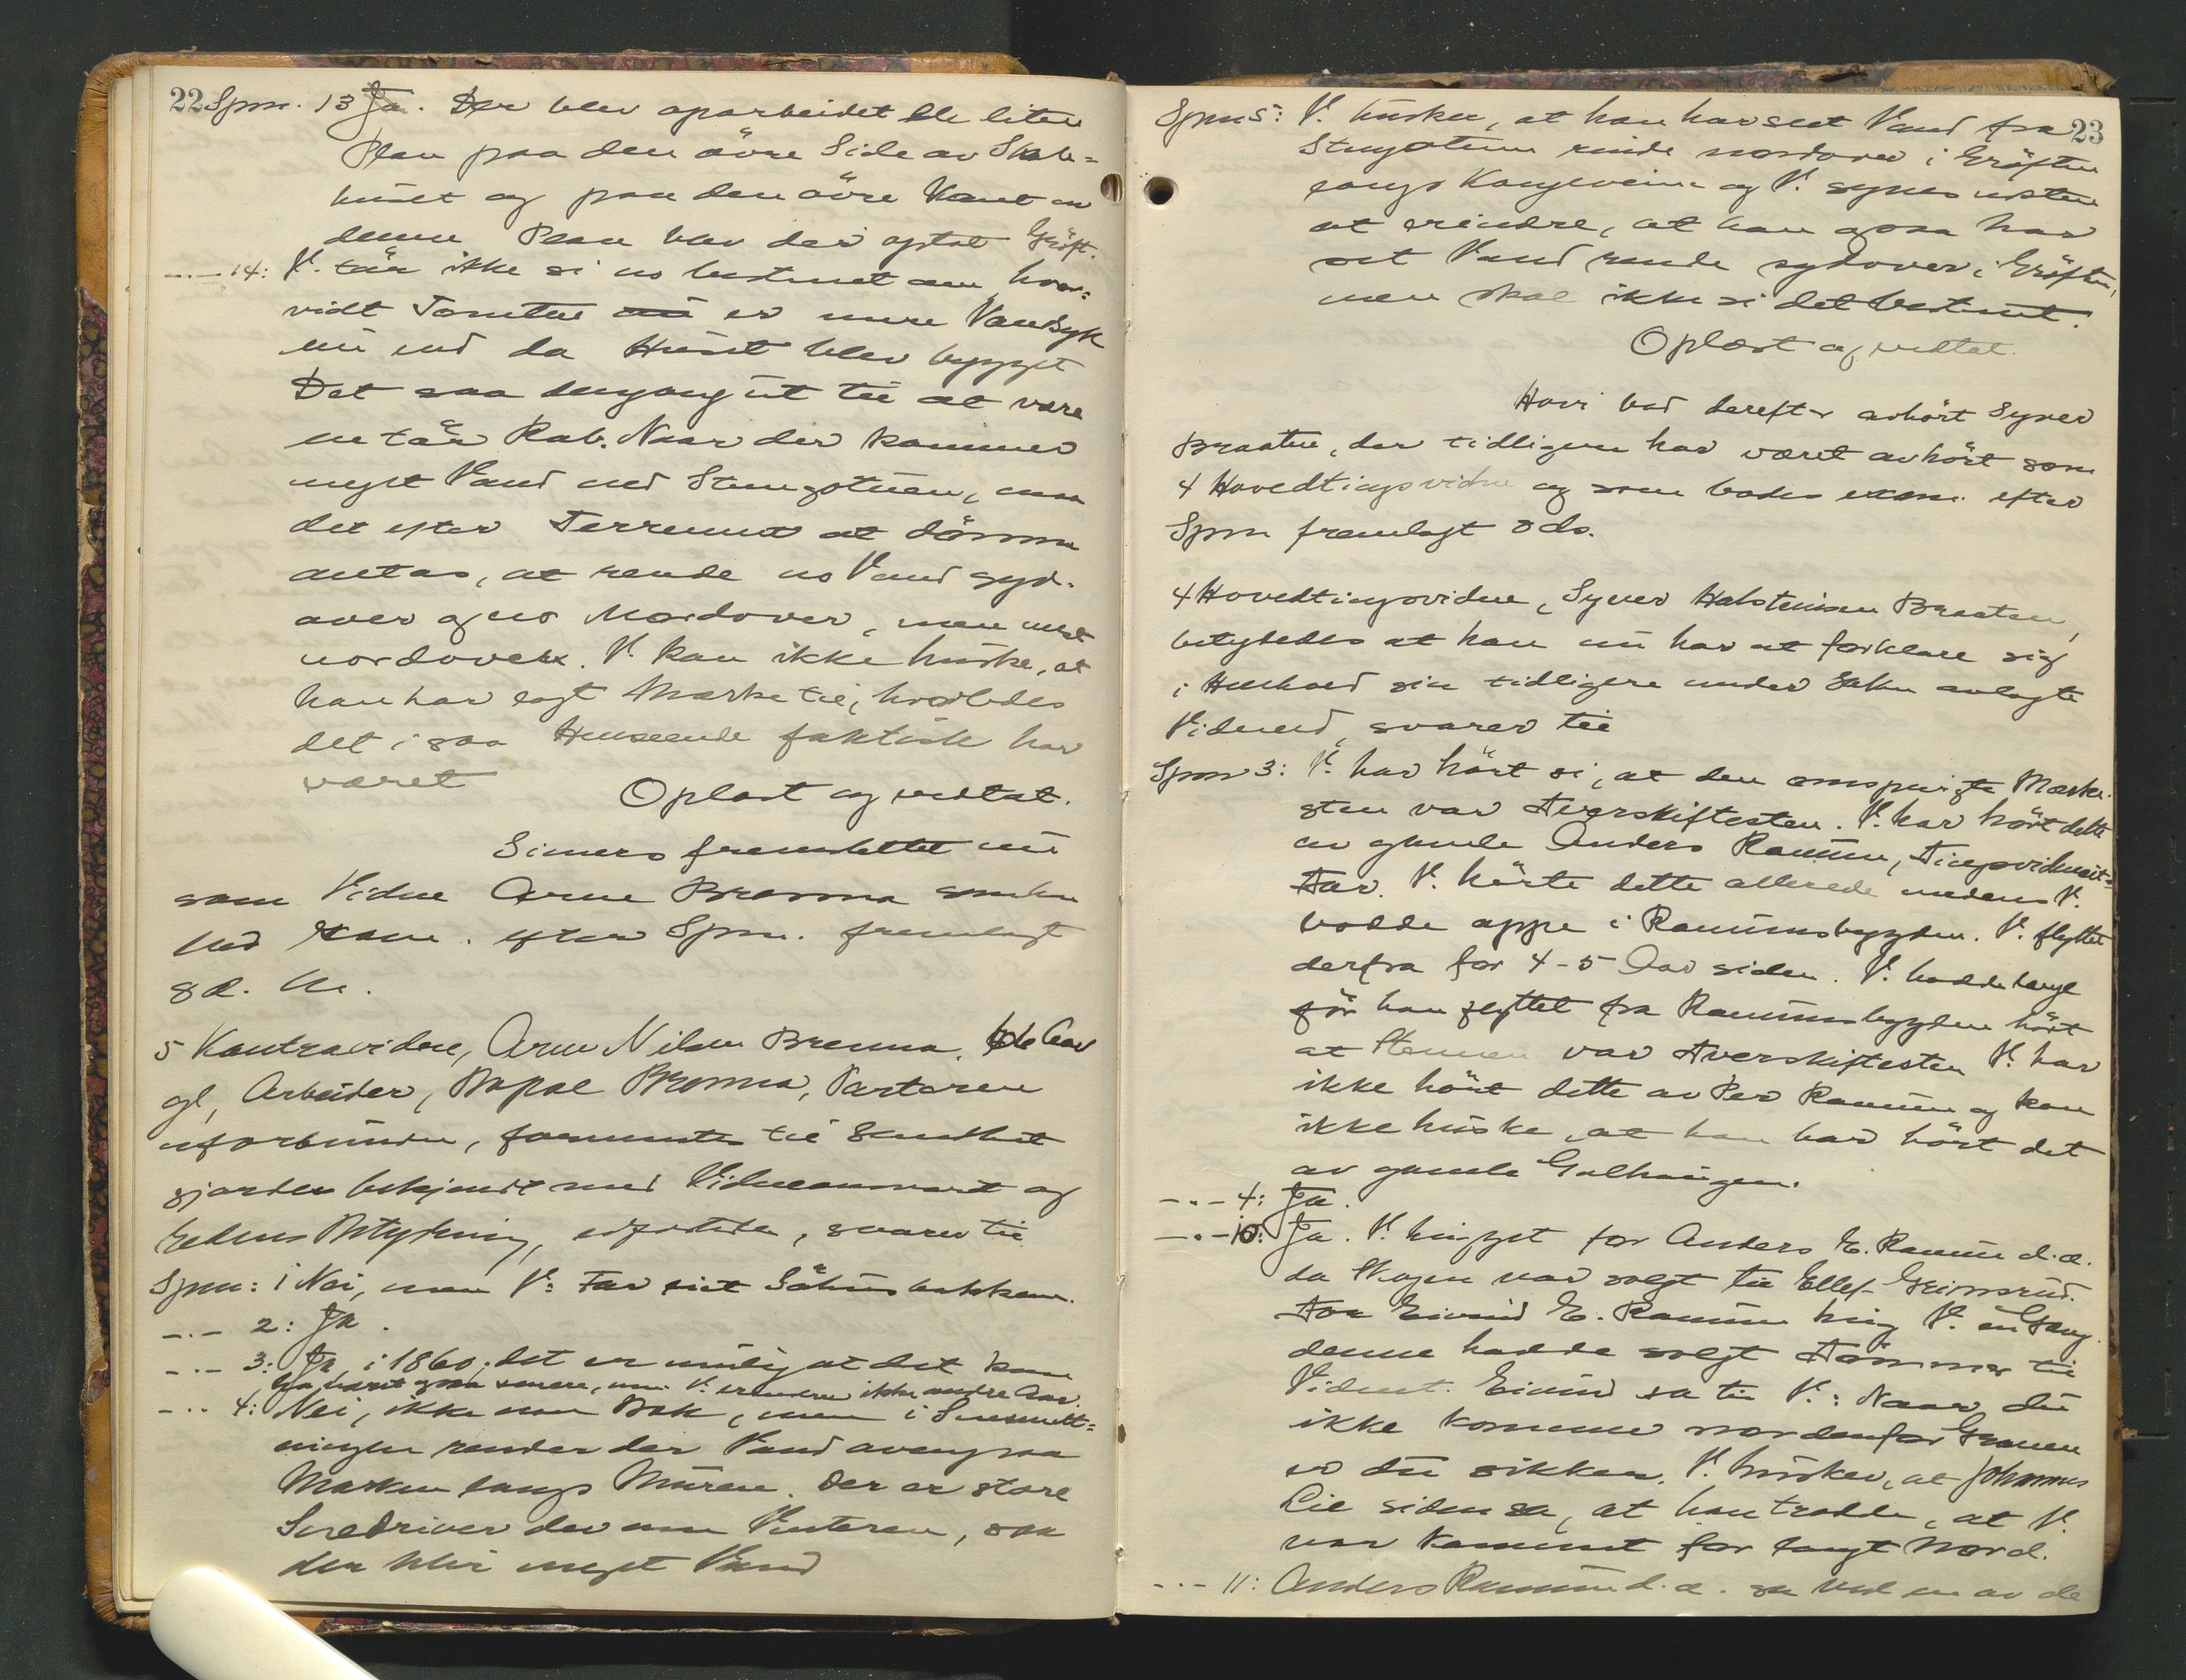 22 Spm. 13 Ja. Der blev oparbeidet en liten
Plan paa den övre Side av
huset og paa den övre Kant av
denne Plan blev der optat Gröft.
-..-14: V. tör ikke si no bestemt om hvor-
vidt Tomten er mere Vandsyk
nu end da Huset blev bygget
Det saa dengang ut til at være
en tör Rab. Naar der kommer
meget Vand ned, maa
det efter Terrenget at dömme
antas, at rende no Vand syd-
over og no Nordover, men mest
nordover. V. kan ikke huske, at
han har lagt Mærke til, hvorledes
det i saa Henseende faktisk har
været
Oplæst og vedtat.
Simers fremstillet nu
som Vidne Arne Brenna som han
bad exam. efter Spm. fremlagt
s. d.
5 Kontravidne, Arne Nilsen Brenna, Aar
gl, Arbeider, Bopæl Brenna, Parterne
uforbunden, formantes til Sandhet
gjordes bekjendt med Vidneansvaret og
Edens Betydning, edfæstedes, svarer til
Spm: 1 Nei, men V:
-..- 2: Ja.
-..- 3: Ja, i 1860; det er mulig at det kan
ha været ogsaa senere, men V. erindrer ikke andre Aar.
-..- 4: Nei, ikke noen Bæk, men i Snesmelt-
ningen render der Vand ovenpaa
Marken langs Muren. Der er store
Snedriver der om Vinteren, saa
der blir meget Vand
23
Spm 5: V. husker, at han har seet Vand fra
rinde nordover i Gröften
langs Kongeveien og V. synes næsten
at erindre, at han ogsaa har
set Vand rende sydover i Gröften,
men skal ikke si det bestemt.
Oplæst og vedtat.
Hovi bad derefter avhört Syver
Braaten, der tidligere har været avhört som
4 Hovedtingsvidne og som bades exam. efter
Spm fremlagt s ds.
4 Hovedtingsvidne, Syver Halstensen Braaten,
betydedes at han nu har at forklare sig
i Henhold sin tidligere under Saken avlagte
Vidneed, svarer til
Spm 3: V. har hört si, at den omspurgte Mærke-
sten var Tverskiftesten. V. har hört dette
av gamle Anders Ramum, Tingsvidneit's
Far. V. hörte dette allerede medens V.
bodde oppe i Ramumsbygden. V. flyttet
derfra for 4-5 Aar siden. V. hadde længe
för han flyttet fra Ramumsbygden hört
at Stenen var Tverskiftesten V. har
ikke hört dette av Per Ramum og kan
ikke huske, at han har hört det
av gamle Galhaugen.
-..- 4: Ja.
-..- 10: Ja. V. hugget for Anders E. Ramum d.æ.
da Skogen var solgt til Ellef Grimsrud.
For Eivind E. Ramum hug V. en Gang.
denne hadde solgt Tömmer til
Vidnet. Eivind sa til V.: Naar du
ikke kommer nordenfor Granen
er du sikker. V. husker, at Johannes
Lie siden sa, at han trodde, at V.
var kommet for langt Nord.
-..- 11: Anders Ramum d.æ. sa ved en av de